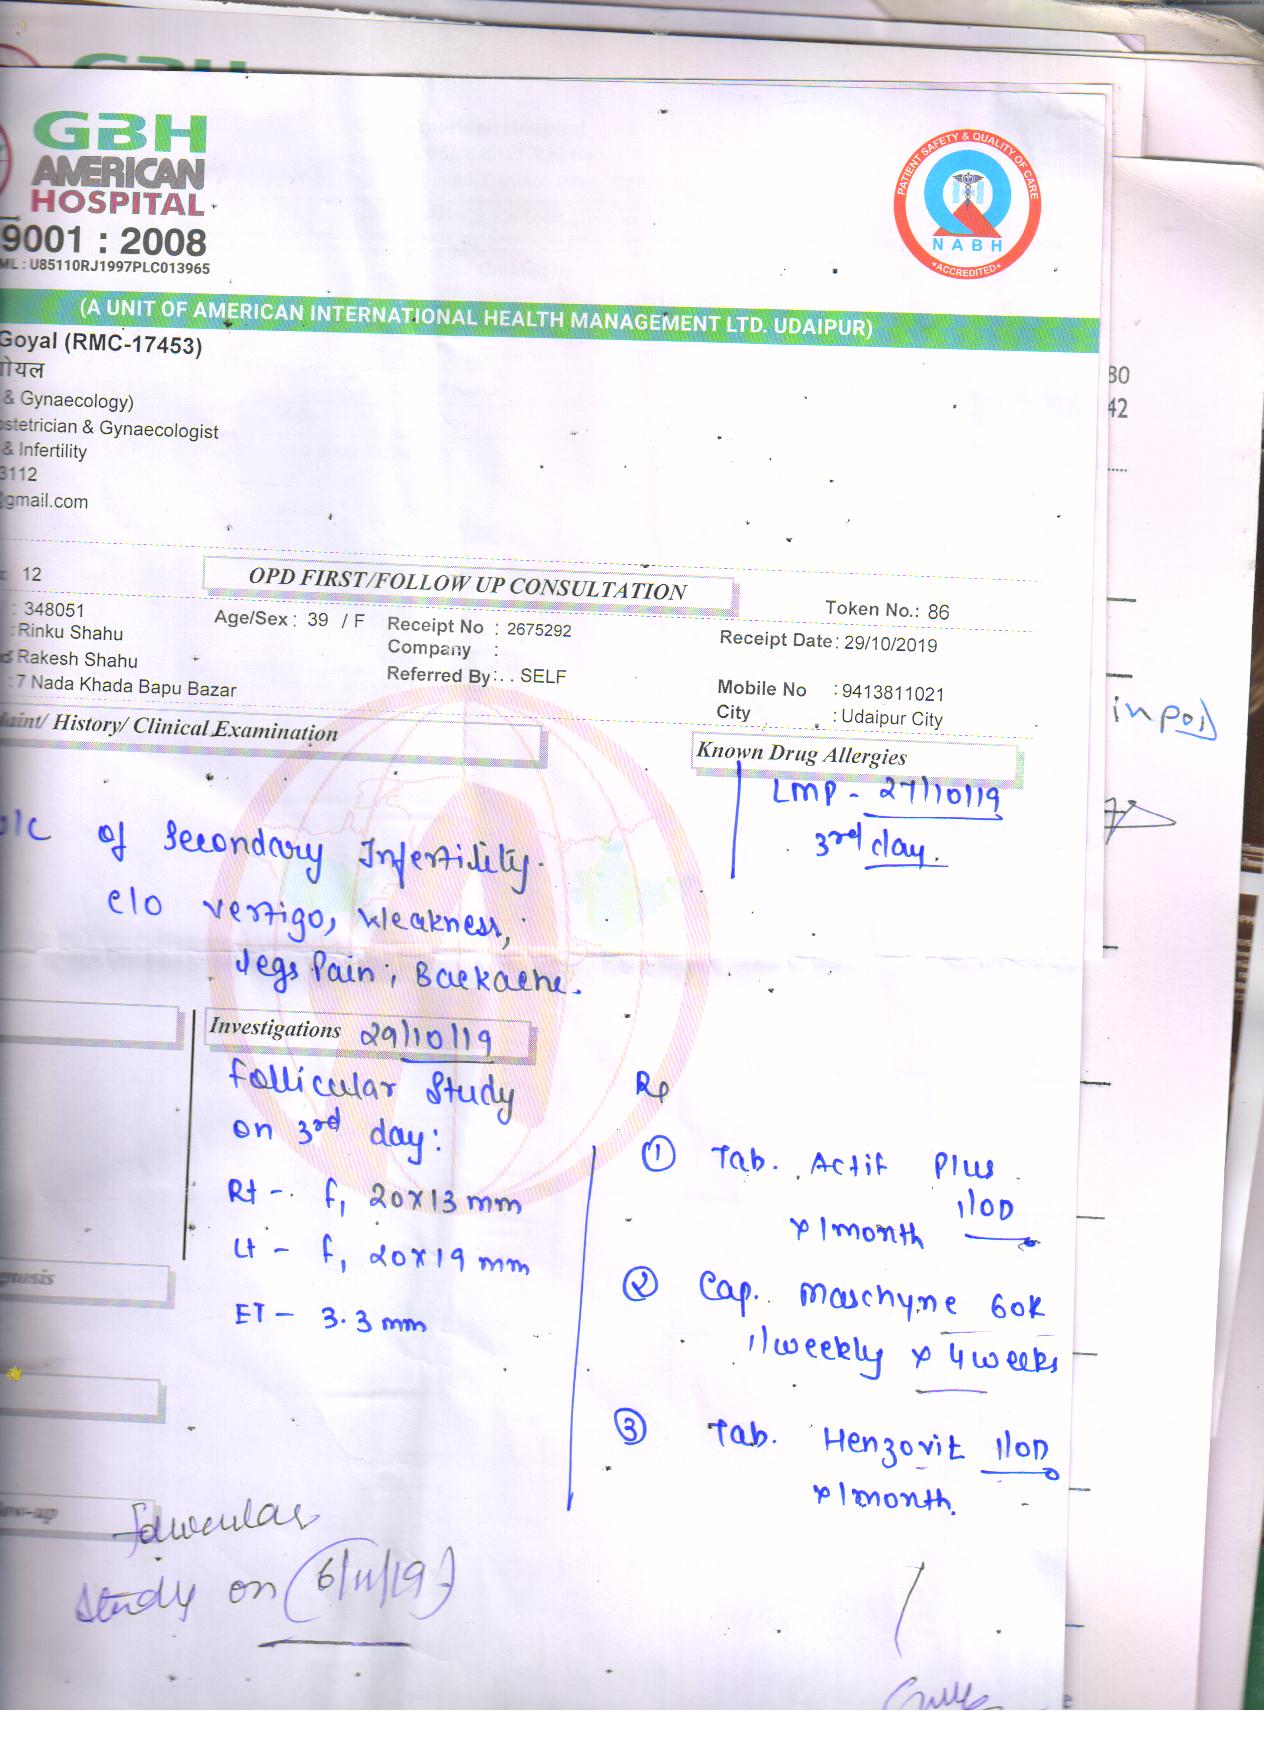 GBH
AMERICAN
HOSPITAL
9001 : 2008
U85110RJ1997PLC013965
PATIENT SAFETY & QUALITY OF CARE
NABH
ACCREDITED
(A UNIT OF AMERICAN INTERNATIONAL HEALTH MANAGEMENT LTD. UDAIPUR)
Goyal (RMC-17453)
गोयल
& Gynaecology)
stetrician & Gynaecologist
& Infertility
3112
@gmail.com
80
42
: 12
OPD FIRST/FOLLOW UP CONSULTATION
Token No.: 86
: 348051
Age/Sex : 39 / F
Receipt No : 2675292
Receipt Date : 29/10/2019
:Rinku Shahu
Company :
: Rakesh Shahu
Referred By :. . SELF
Mobile No : 9413811021
:7 Nada Khada Bapu Bazar
City : Udaipur City
aint/ History/ Clinical Examination
Known Drug Allergies
LMP - 27/10/19
3rd day.
of Secondary Infertility.
c/o vertigo, weakness,
legs Pain, Backache.
Investigations 29/10/19
Follicular Study
on 3rd day:
Rt - f, 20x13 mm
Lt - f, 20x19 mm
ET - 3.3 mm
Rp
① Tab. Actif Plus
1/OD
x 1month
② Cap. Maschyne 60K
1/weekly x 4 weeks
③ Tab. Henzovit 1/OD
x 1month.
gnosis
ow-up
study on (6/11/19)